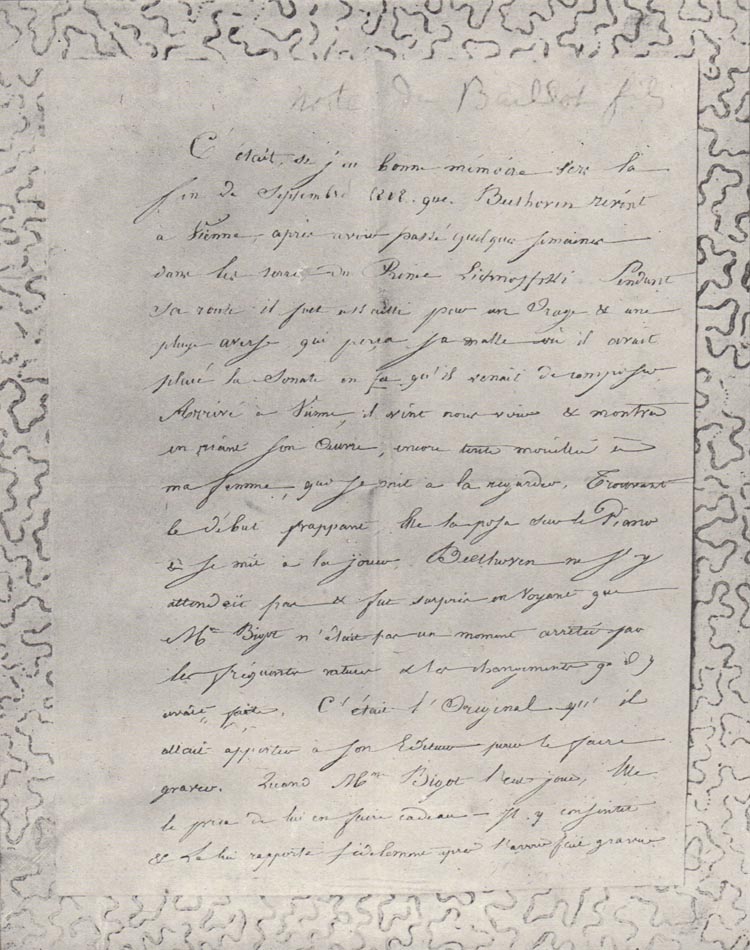 note de Baillot fils
C'était, si j'ai bonne mémoire vers la
fin de Septembre 1808. que Beethoven revint
a Vienne, après avoir passé quelques semaines
dans les terres du Prince Lichnoffski Pendant
sa route il fut assailli par un Orage & une
pluye averse qui perça sa malle où il avait
placé la Sonate en fa qu'il venait de composer
Arrivé à Vienne, il vint nous voir & montra
en riant son Œuvre, encore toute mouillée à
ma femme, qui se mit a la regarder. Trouvant
le début frappant Elle la posa sur le Piano
& se mit à la jouer. Beethoven ne s'y
attendait pas & fut surpris en voyant que
Me Bigot n'était pas un moment arrêtée par
les fréquentes ratures & les changements qu'il y
avait faits. C'était l'Original qu'il
allait apporter à son Editeur pour le faire
graver. Quand Me Bigot l'eut joué, Elle
le pria de lui en faire cadeau. Il y consentit
& le lui rapporta fidèlement après l'avoir fait graver